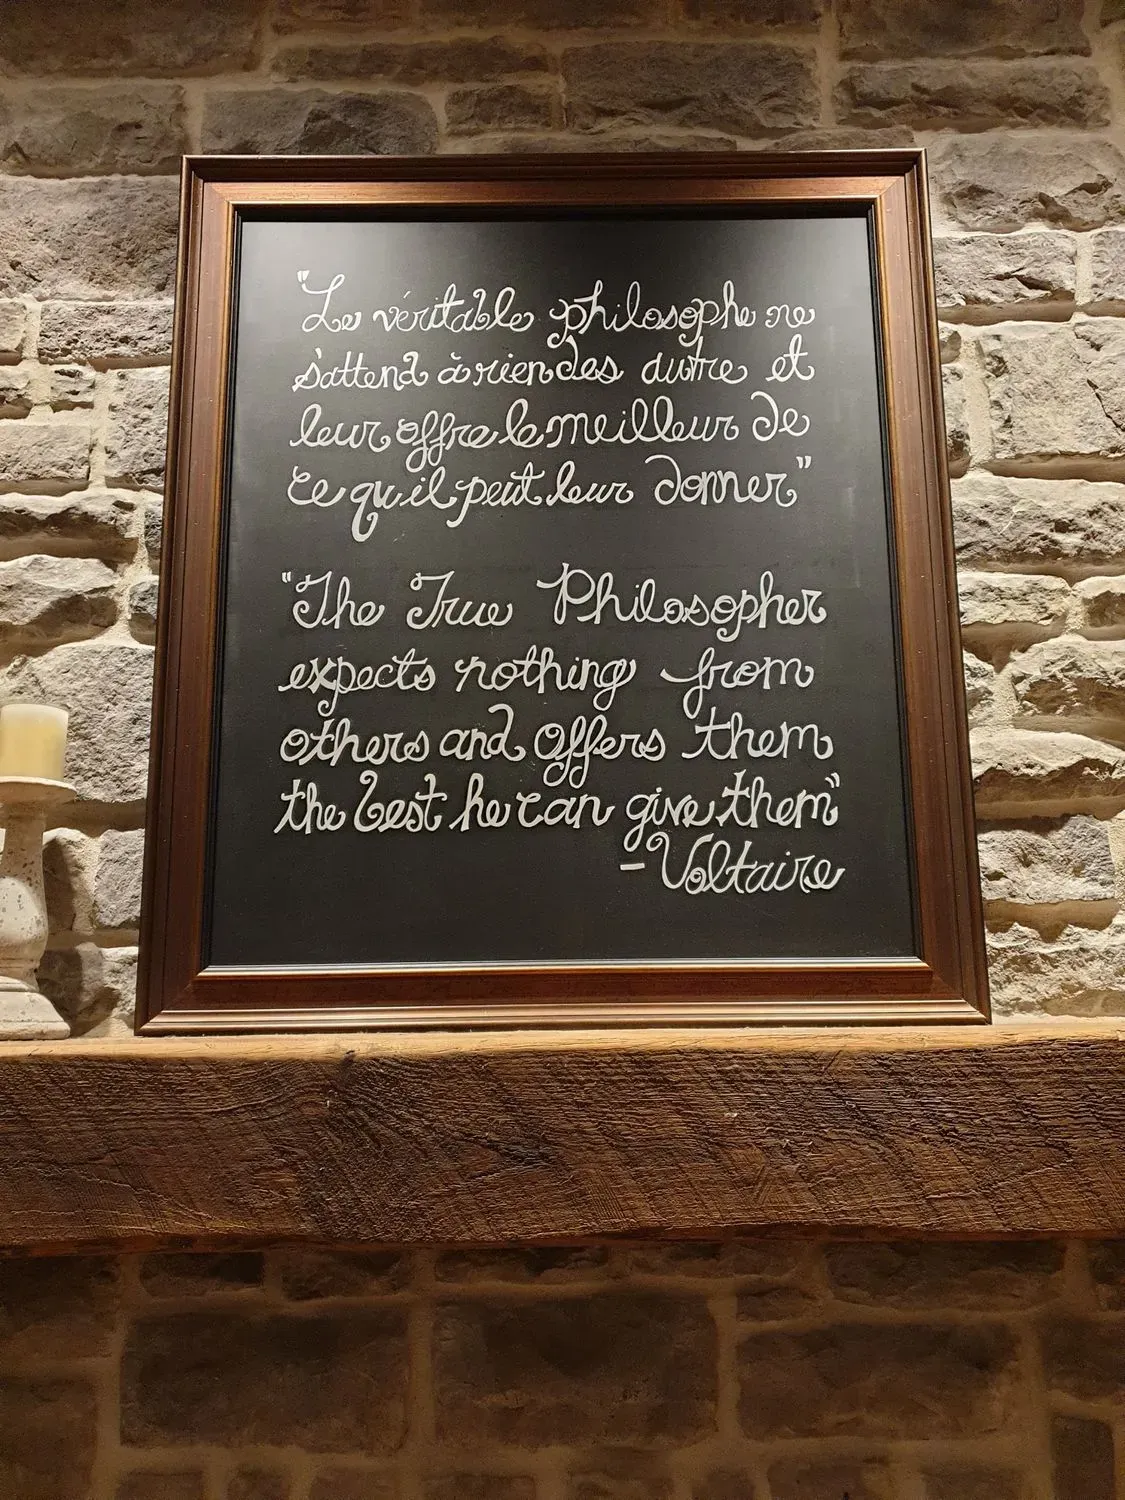 "Le véritable philosophe ne
s'attend à rien des autre et
leur offre le meilleur de
ce qu'il peut leur donner"
"The True Philosopher
expects nothing from
others and offers them
the best he can give them"
-Voltaire